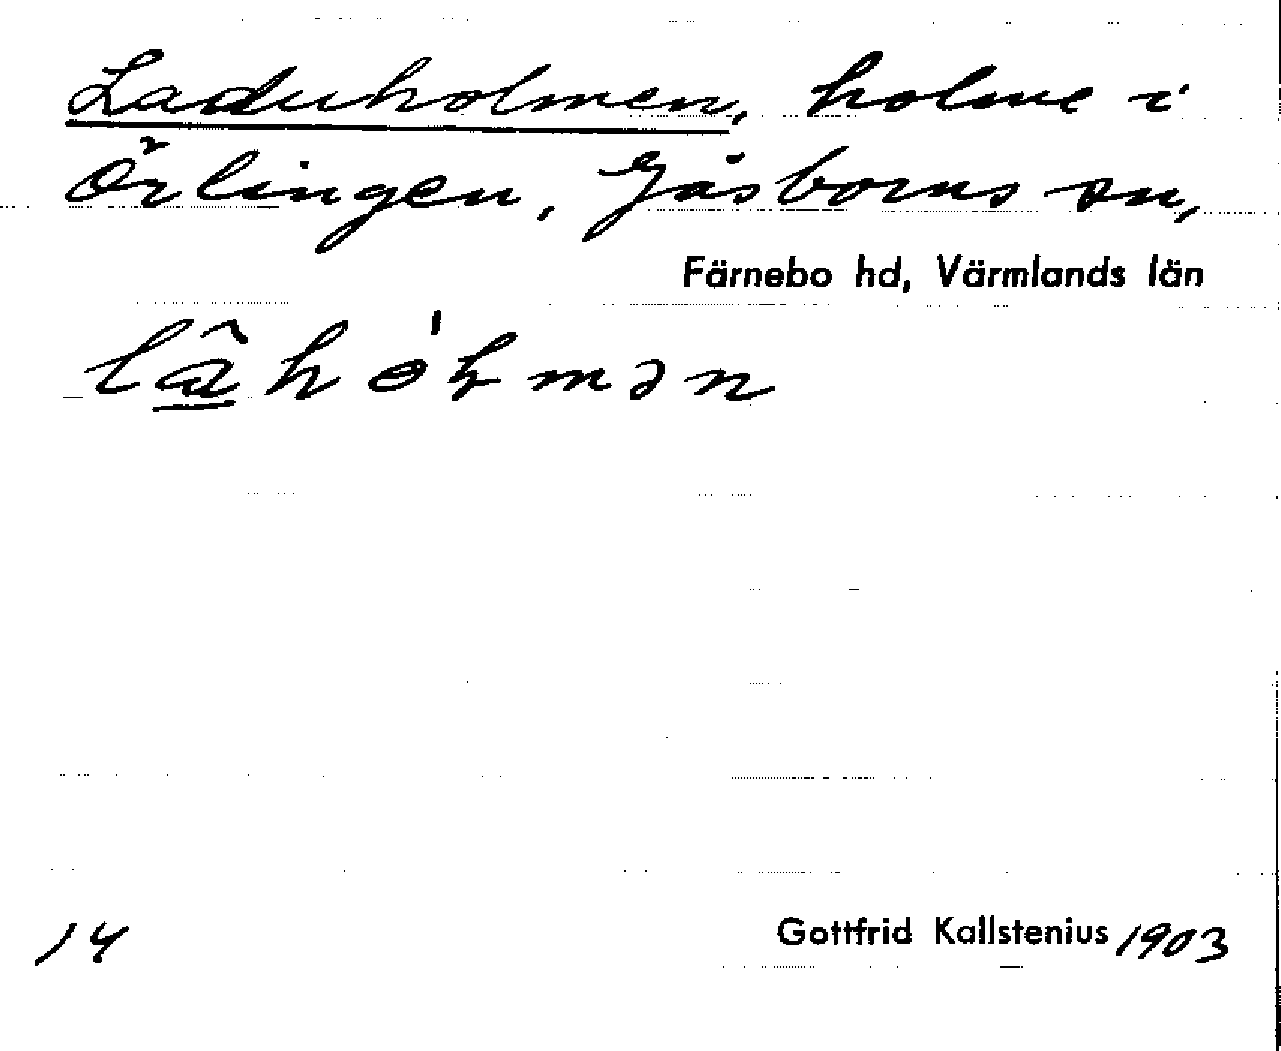 Laduholmen, holme i
Örlingen, Gåsborns sn,
Färnebo hd, Värmlands län
lâhómən
14 Gottfrid Kallstenius 1903